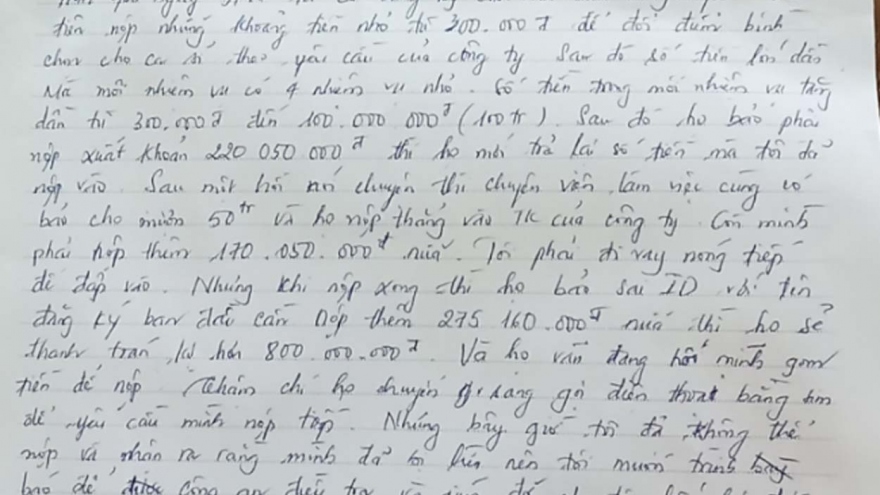 tiền nộp những khoảng tiền nhỏ từ 300.000đ để đổi điểm bình
chọn cho ca sĩ theo yêu cầu của công ty Sau đó số tiền lớn dần
Mà mỗi nhiệm vụ có 4 nhiệm vụ nhỏ. Số tiền trong mỗi nhiệm vụ tăng
dần từ 300.000đ đến 100.000 000đ (100tr). Sau đó họ bảo phải
nộp xuất khoản 220 050 000đ thì họ mới trả lại số tiền mà tôi đã
nộp vào. Sau một hồi nói chuyện thì chuyên viên làm việc cũng có
bảo cho mượn 50tr và họ nộp thẳng vào TK của công ty. Còn mình
phải nộp thêm 170.050.000đ nữa. Tôi phải đi vay nóng tiếp
để đắp vào. Nhưng khi nộp xong thì họ bảo sai ID với tên
đăng ký ban đầu cần nộp thêm 275 160.000đ nữa thì họ sẽ
thanh trán lại hơn 800.000.000đ. Và họ vẫn đang hối mình gom
tiền để nộp Thậm chí họ chuyển sang gọi điện thoại bằng
để yêu cầu mình nộp tiếp. Nhưng bây giờ tôi đã không thể
nộp và nhận ra rằng mình đã bị lừa nên tôi muốn trình
báo để được công an điều tra